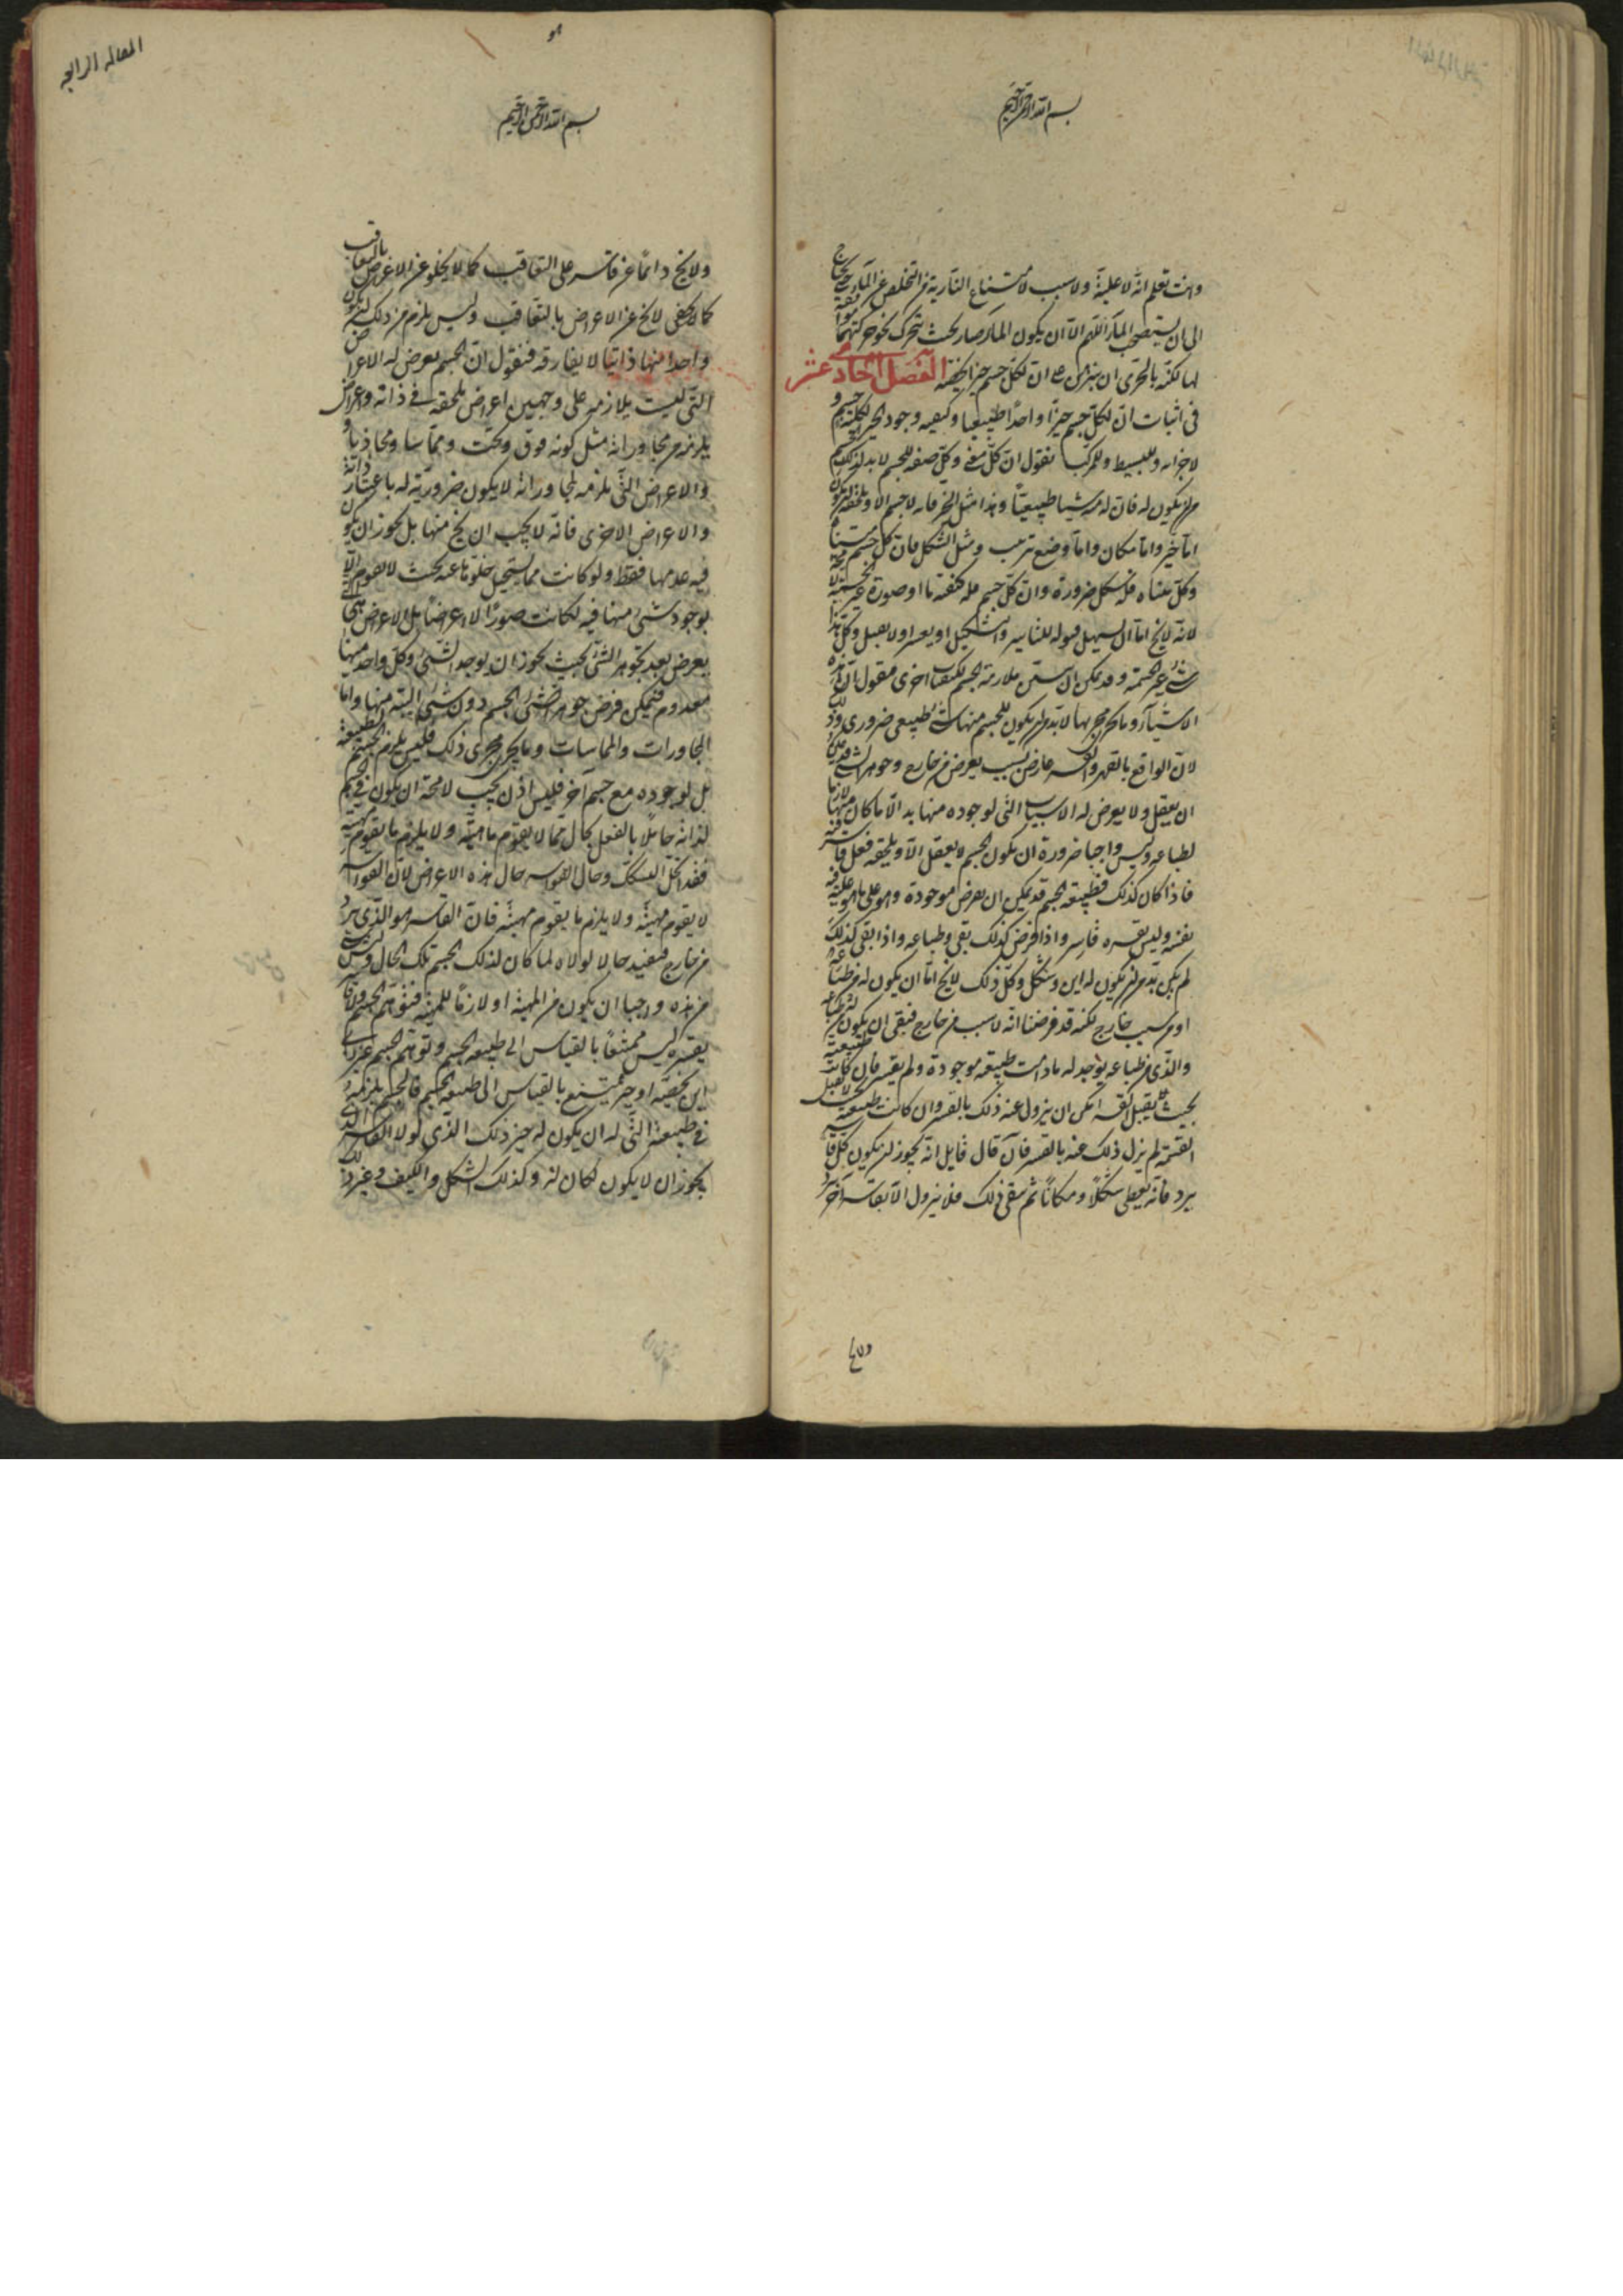 بسم الله الرحمن الرحيم
وانت تعلم انه لا علية ولا سبب لامتناع النارية من التخلص عن الماء حتى يحتاج
الى ان يستصحب الماء اللهم الا ان يكون الماء صار بحيث يتحرك نحو حركتها موافقة
لها لكنه بالحرى ان نبرهن على ان لكل جسم حيزا يخصه الفصل الحادي عشر
فى اثبات ان لكل جسم حيزا واحدا طبيعيا وكيفيه وجود الحيز لكلية جسم و
لاجزائه وللبسيط وللمركب نقول ان كل معنى وكل صفه للجسم لا بد لذلك الجسم
من ان يكون له فان له منه شيئا طبيعيا وهذا مثل الحيز فانه لا جسم الا ويلحقه ان يكون
اما حيز واما مكان واما وضع ترتيب ومثل الشكل فان كل جسم متناه
وكل متناه فله شكل ضرورة وان كل جسم فله كيفية ما او صورة غير الجسمية لا محة
لانه لا يخ اما ان يسهل قبوله للتاثير والتشكيل او يعسر او لا يقبل وكل هذا
شئ غير الجسمية وقد يمكن ان ملازمة الجسم لكيفيات اخرى فنقول ان هذه
الاشياء وما يجرى مجريها لا بد من ان يكون للجسم منها شئ طبيعى ضرورى وذلك
لان الواقع بالقهر والقسر عارض لسبب يعرض من خارج وجوهر الشئ قد يمكن
ان يعقل ولا يعرض له الاسباب التى لوجوده منها بد الا ما كان منها لازما
لطباعه وليس واجبا ضرورة ان يكون الجسم لا يعقل الا ويلحقه فعل قاسر
فاذا كان كذلك فطبيعة الجسم قد يمكن ان يعرض موجودة وهو على ما هو عليه فى
نفسه وليس يقسره قاسر واذا فرض كذلك بقى وطباعه واذا بقى كذلك
لم يكن بد من ان يكون له اين وشكل وكل ذلك لا يخ اما ان يكون له من طباعه
او من سبب خارج لكنه قد فرضنا انه لا سبب من خارج فبقى ان يكون من طباعه
والذى من طباعه يوجد له ما دامت طبيعته موجودة ولم يقسر فان كانت طبيعته
بحيث يقبل القسر امكن ان يزول عنه ذلك بالقسر وان كانت طبيعته بحيث لا يقبل
القسر لم يزل ذلك عنه بالقسر فان قال قايل انه يجوز ان يكون كل قاسر
يرد فانه يعطى شكلا ومكانا ثم يبقى ذلك فلا يزول الا بقاسر آخر
ولا يخ
المقالة الرابعة
هو
بسم الله الرحمن الرحيم
ولا يخ دائما عن قاسر على التعاقب كما لا يخلو عن الاعراض بالتعاقب
كما لا يخفى لا يخ عن الاعراض بالتعاقب وليس يلزم من ذلك ان يكون
واحدا منها ذاتيا لا يفارقه فنقول ان الجسم يعرض له الاعراض
التى ليست يلازمه على وجهين اعراض يلحقه فى ذاته واعراض
يلزمه من مجاوراته مثل كونه فوق وتحت ومماسا ومحاذيا و
والاعراض التى يلزمه لمجاوراته لا يكون ضرورية له باعتبار ذاته
والاعراض الاخرى فانه لا يجب ان يخ منها بل يجوز ان يكون
فيه عدمها فقط ولو كانت مما يستحيل خلوها عنه بحيث لا يقوم الا
بوجود شئ منها فيه لكانت صورا لا اعراضا بل الاعراض هى
يعرض بعد تجوهر الشئ بحيث يجوز ان يوجد الشئ وكل واحد منها
معدوم فيمكن فرض جوهر الجسم دون شئ البتة منها واما
المجاورات والمماسات وما يجرى مجرى ذلك فليس يلزم الجسم لطبيعته
بل لوجوده مع جسم آخر فليس اذن يجب لا محة ان يكون الجسم
لذاته حاملا بالفعل بحال مما لا يقوم ماهيته ولا يلزم ما يقوم مهيته
فقد انحل الشك وحال القواسر حال هذه الاعراض لان القواسر
لا يقوم مهيته ولا يلزم ما يقوم مهيته فان القاسر هو الذى يرد
من خارج فيفيد حالا لولاه لما كان لذلك الجسم تلك الحال وليس شئ
من هذه واجبا ان يكون من المهية او لازما للمهية فتوهم الجسم ولا قاسر
يقسره ليس ممتنعا بالقياس الى طبيعه الجسم وتوهم الجسم غير ذى
اين يخصه او حيز ممتنع بالقياس الى طبيعه الجسم فالجسم يلزمه
فى طبيعته التى له ان يكون له حيز ذلك الذى لولا القاسر الذى
يجوز ان لا يكون لكان له وكذلك الشكل والكيف وغير ذلك